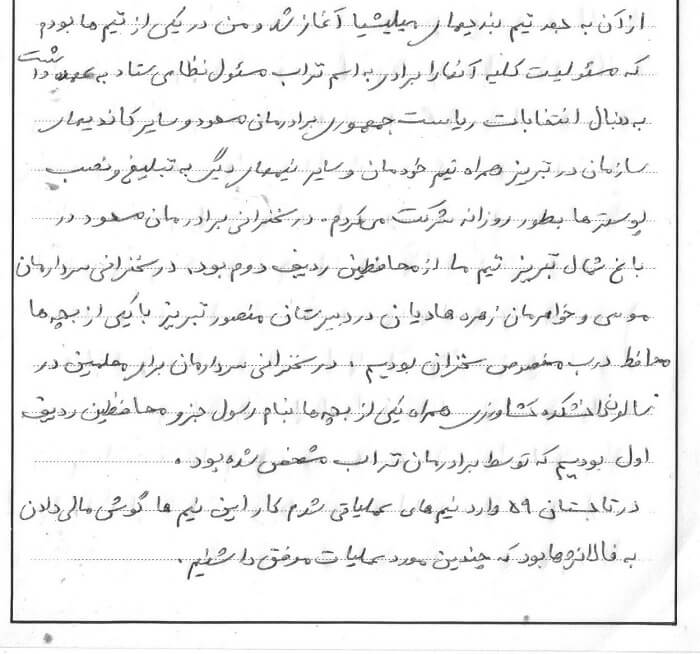 از آن به بعد تیم بندیهای میلیشیا آغاز شد و من در یکی از تیم ها بودم
که مسئولیت کلیه آنها را برادری به اسم تراب مسئول نظامی ستاد به عهده داشت
به دنبال انتخابات ریاست جمهوری برادرمان مسعود و سایر کاندیدهای
سازمان در تبریز همراه تیم خودمان و سایر تیمهای دیگر به تبلیغ و نصب
پوسترها بطور روزانه شرکت می کردم. در سخنرانی برادرمان مسعود در
باغ شمال تبریز تیم ما از محافظین ردیف دوم بود، در سخنرانی سردارمان
موسی و خواهرمان زهره هادیان در دبیرستان منصور تبریز با یکی از بچه ها
محافظ درب مخصوص سخنران بودیم، در سخنرانی سردارمان برای معلمین در
سالن دانشکده کشاورزی همراه یکی از بچه ها بنام رسول جزو محافظین ردیف
اول بودیم که توسط برادرمان تراب مشخص شده بود.
در تابستانی ۵۹ وارد تیم های عملیاتی شدم کار این تیم ها گوش مالی دادن
به فالانژها بود که چندین مورد عملیات موفق داشتیم.